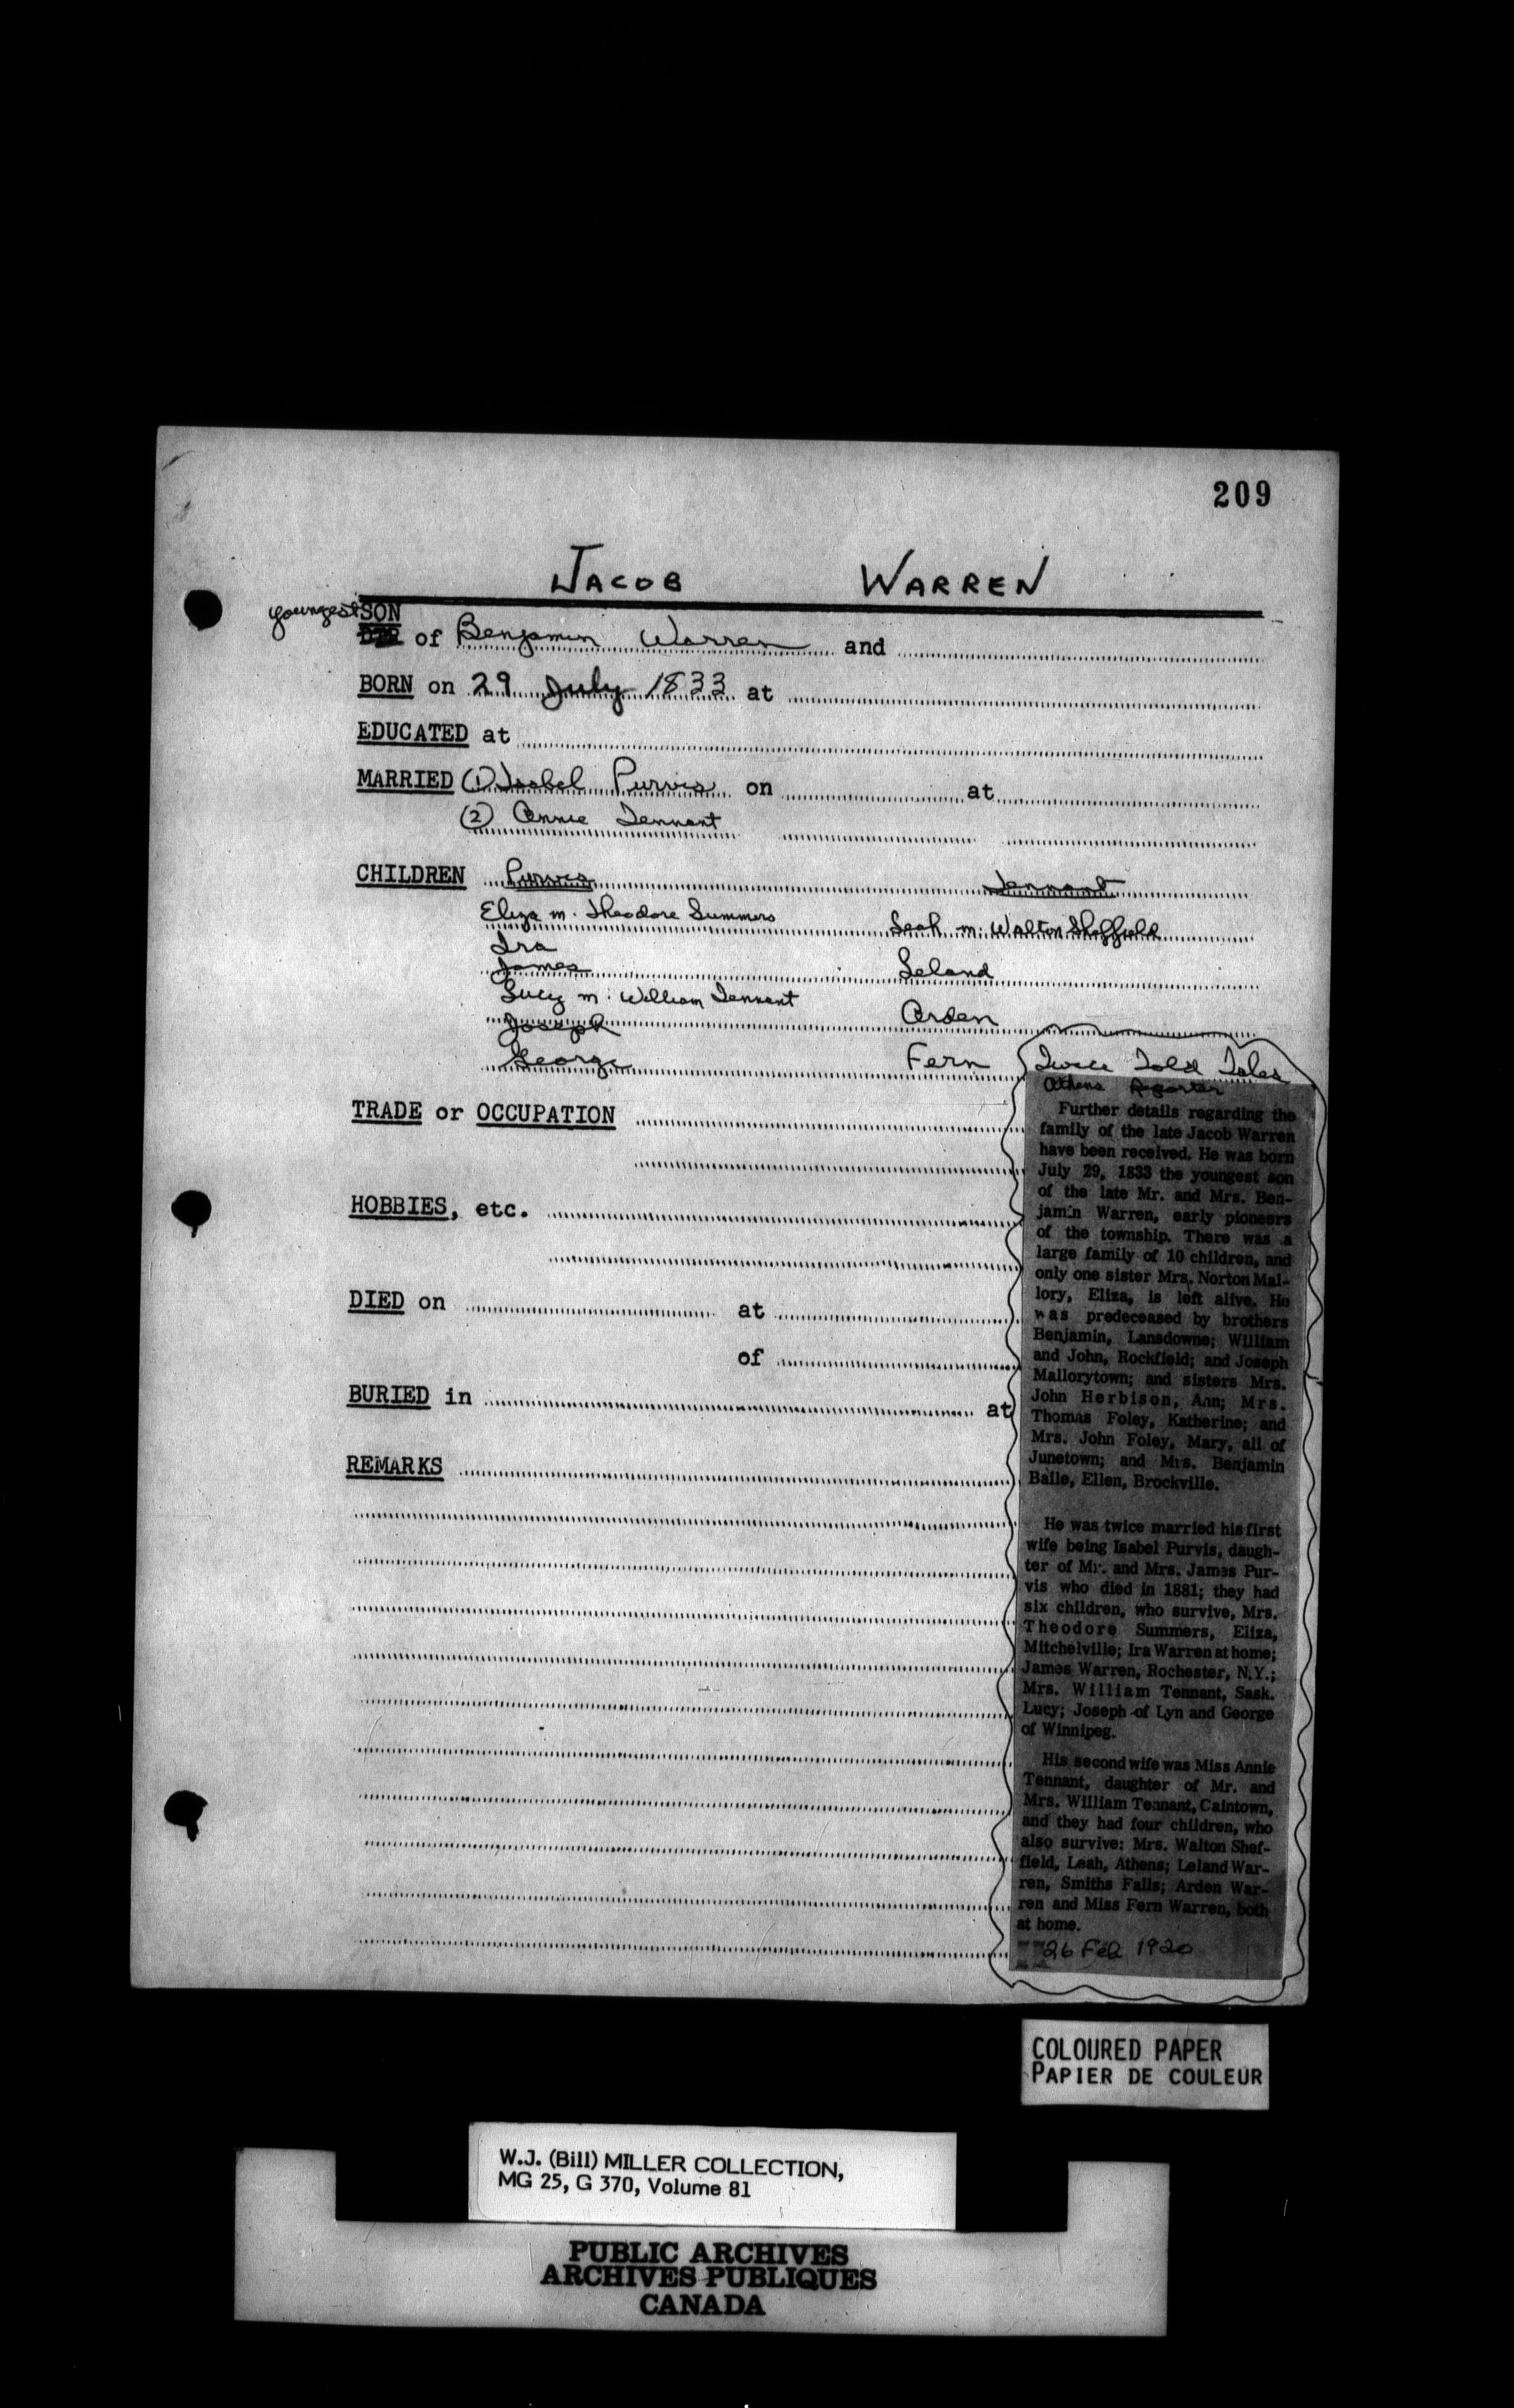 209
JACOB WARREN
youngest SON
DTR of Benjamin Warren and
BORN on 29 July 1833 at
EDUCATED at
MARRIED (1) Isabel Purvis on at
(2) Annie Tennant
CHILDREN Purvis Tennant
Eliza m. Theodore Summers Leah m. Walton Sheffield
Ira
James Leland
Lucy m. William Tennant
Joseph Arden
George Fern
Twice Told Tales
Athens Reporter
TRADE or OCCUPATION
HOBBIES, etc.
DIED on at
of
BURIED in at
REMARKS
Further details regarding the
family of the late Jacob Warren
have been received. He was born
July 29, 1833 the youngest son
of the late Mr. and Mrs. Ben-
jamin Warren, early pioneers
of the township. There was a
large family of 10 children, and
only one sister Mrs. Norton Mal-
lory, Eliza, is left alive. He
was predeceased by brothers
Benjamin, Lansdowne; William
and John, Rockfield; and Joseph
Mallorytown; and sisters Mrs.
John Herbison, Ann; Mrs.
Thomas Foley, Katherine; and
Mrs. John Foley, Mary, all of
Junetown; and Mrs. Benjamin
Baile, Ellen, Brockville.
He was twice married his first
wife being Isabel Purvis, daugh-
ter of Mr. and Mrs. James Pur-
vis who died in 1881; they had
six children, who survive, Mrs.
Theodore Summers, Eliza,
Mitchelville; Ira Warren at home;
James Warren, Rochester, N.Y.;
Mrs. William Tennant, Sask.
Lucy; Joseph of Lyn and George
of Winnipeg.
His second wife was Miss Annie
Tennant, daughter of Mr. and
Mrs. William Tennant, Caintown,
and they had four children, who
also survive: Mrs. Walton Shef-
field, Leah, Athens; Leland War-
ren, Smiths Falls; Arden War-
ren and Miss Fern Warren, both
at home.
26 Feb 1920
COLOURED PAPER
PAPIER DE COULEUR
W.J. (Bill) MILLER COLLECTION,
MG 25, G 370, Volume 81
PUBLIC ARCHIVES
ARCHIVES PUBLIQUES
CANADA